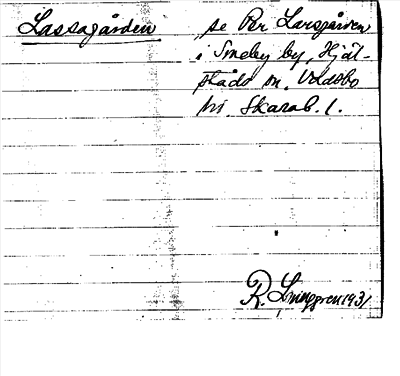 Lassagården se Per Larsgården
i Smeby by, Hjäl-
stads sn, Vadsbo
hd. Skarab. l.
R. Ljunggren 1931